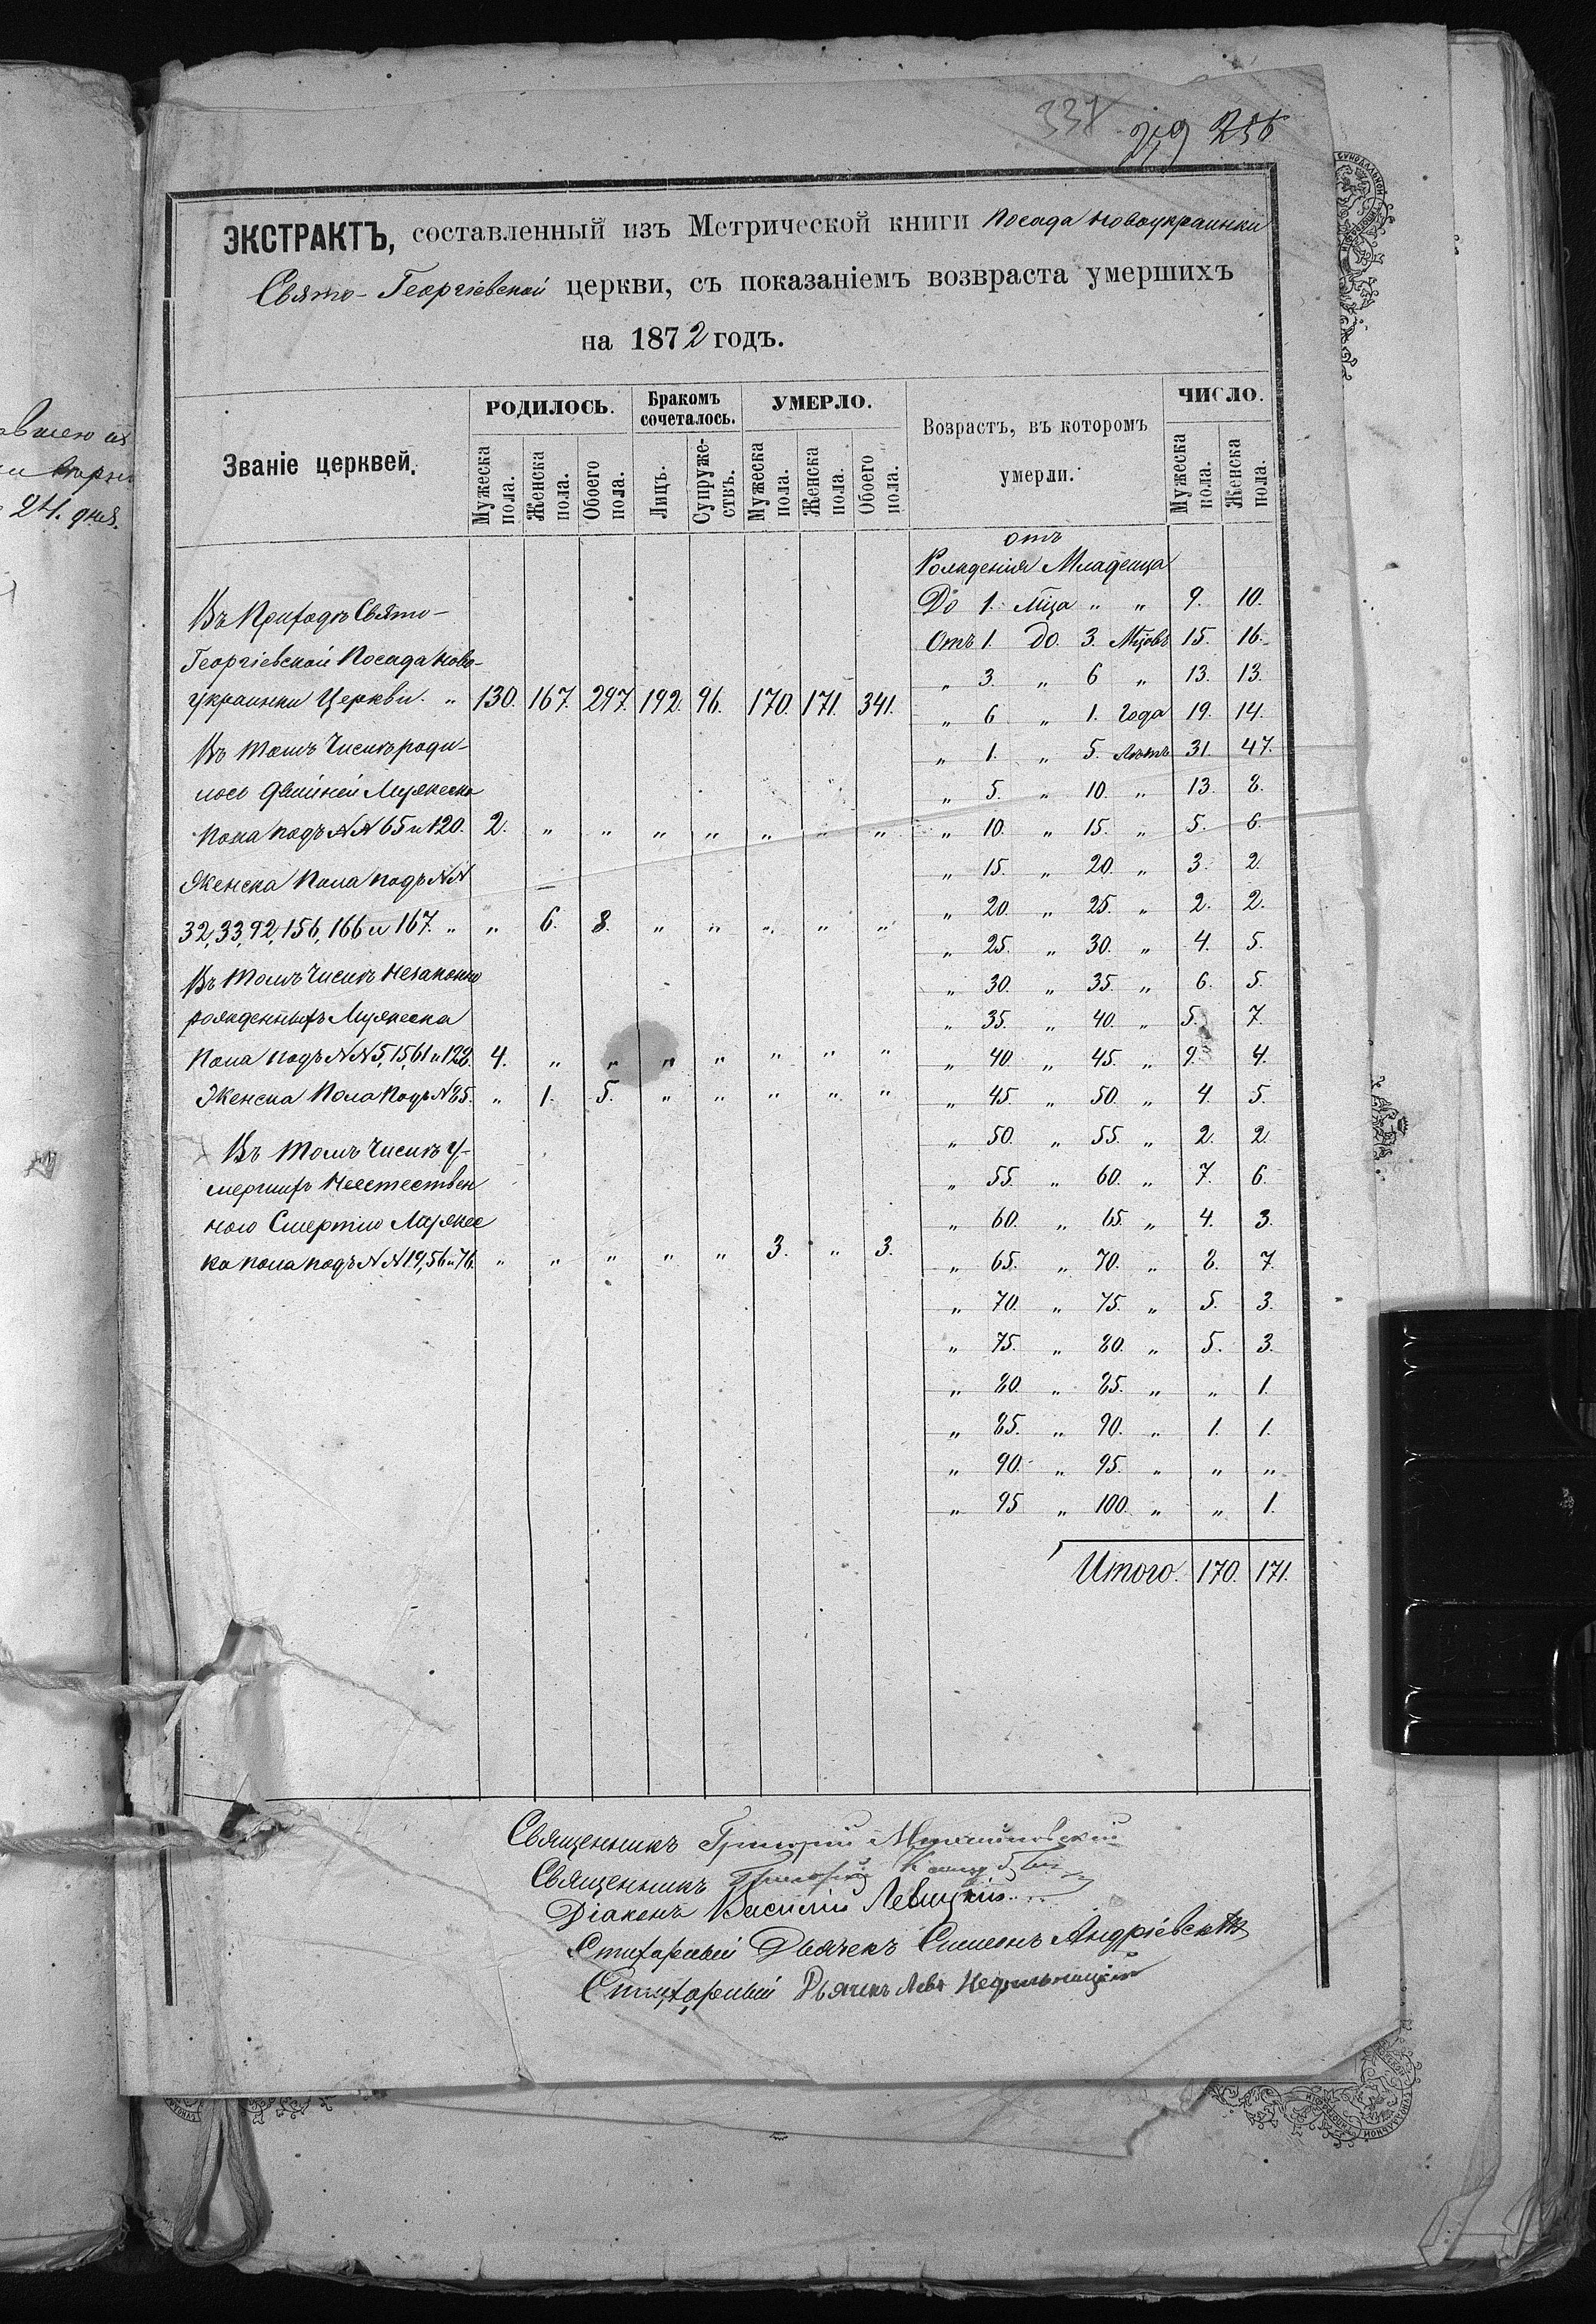 337 249 256
ЭКСТРАКТЪ, составленный изъ Метрической книги Посада Новоукраинки
Свято-Георгіевской церкви, съ показаніемъ возвраста умершихъ
на 1872 годъ.
Званіе церквей. РОДИЛОСЬ. Бракомъ сочеталось. УМЕРЛО. Возрастъ, въ которомъ умерли. ЧИСЛО.
Мужеска пола. Женска пола. Обоего пола. Лицъ. Супружествъ. Мужеска пола. Женска пола. Обоего пола. Мужеска пола. Женска пола.
Въ Приходѣ Свято-
Георгіевской Посада Ново-
украинки Церкви. „ 130. 167. 297. 192. 96. 170. 171. 341.
Въ томъ Числѣ роди-
лось двойней Мужеска
Пола подъ №№ 65 и 120. 2. „ „ „ „ „ „ „
Женска Пола подъ №№
32, 33, 92, 156, 166 и 167. „ „ 6. 8. „ „ „ „ „
Въ томъ Числѣ Незаконно
рожденныхъ Мужеска
Пола подъ №№ 5, 15, 61 и 128. 4. „ „ „ „ „ „ „
Женска Пола Подъ № 85. „ 1. 5. „ „ „ „ „
Въ томъ Числѣ у-
мершихъ Неестествен
ною Смертію Мужес
ка пола подъ №№ 19, 56 и 76. „ „ „ „ „ 3. „ 3.
отъ
Рожденія Младенца
До 1. Мца „ „ 9. 10.
Отъ 1. До. 3. Мцовъ 15. 16.
„ 3. „ 6 „ 13. 13.
„ 6 „ 1. Года 19. 14.
„ 1. „ 5. Лѣтъ 31. 47.
„ 5. „ 10. „ 13. 8.
„ 10. „ 15. „ 5. 6.
„ 15. „ 20. „ 3. 2.
„ 20. „ 25. „ 2. 2.
„ 25. „ 30. „ 4. 5.
„ 30. „ 35. „ 6. 5.
„ 35. „ 40. „ 5. 7.
„ 40. „ 45. „ 9. 4.
„ 45. „ 50. „ 4. 5.
„ 50. „ 55. „ 2. 2.
„ 55. „ 60. „ 7. 6.
„ 60. „ 65. „ 4. 3.
„ 65. „ 70. „ 8. 7.
„ 70. „ 75. „ 5. 3.
„ 75. „ 80. „ 5. 3.
„ 80. „ 85. „ „ 1.
„ 85. „ 90. „ 1. 1.
„ 90. „ 95. „ „ „
„ 95 „ 100. „ „ 1.
Итого. 170. 171.
Священникъ Григорій
Священникъ
Діаконъ Василій Левицкій
Стихарный Дьячекъ Симеонъ Андріевскій
Стихарный Дьячекъ Левъ
24. дня.